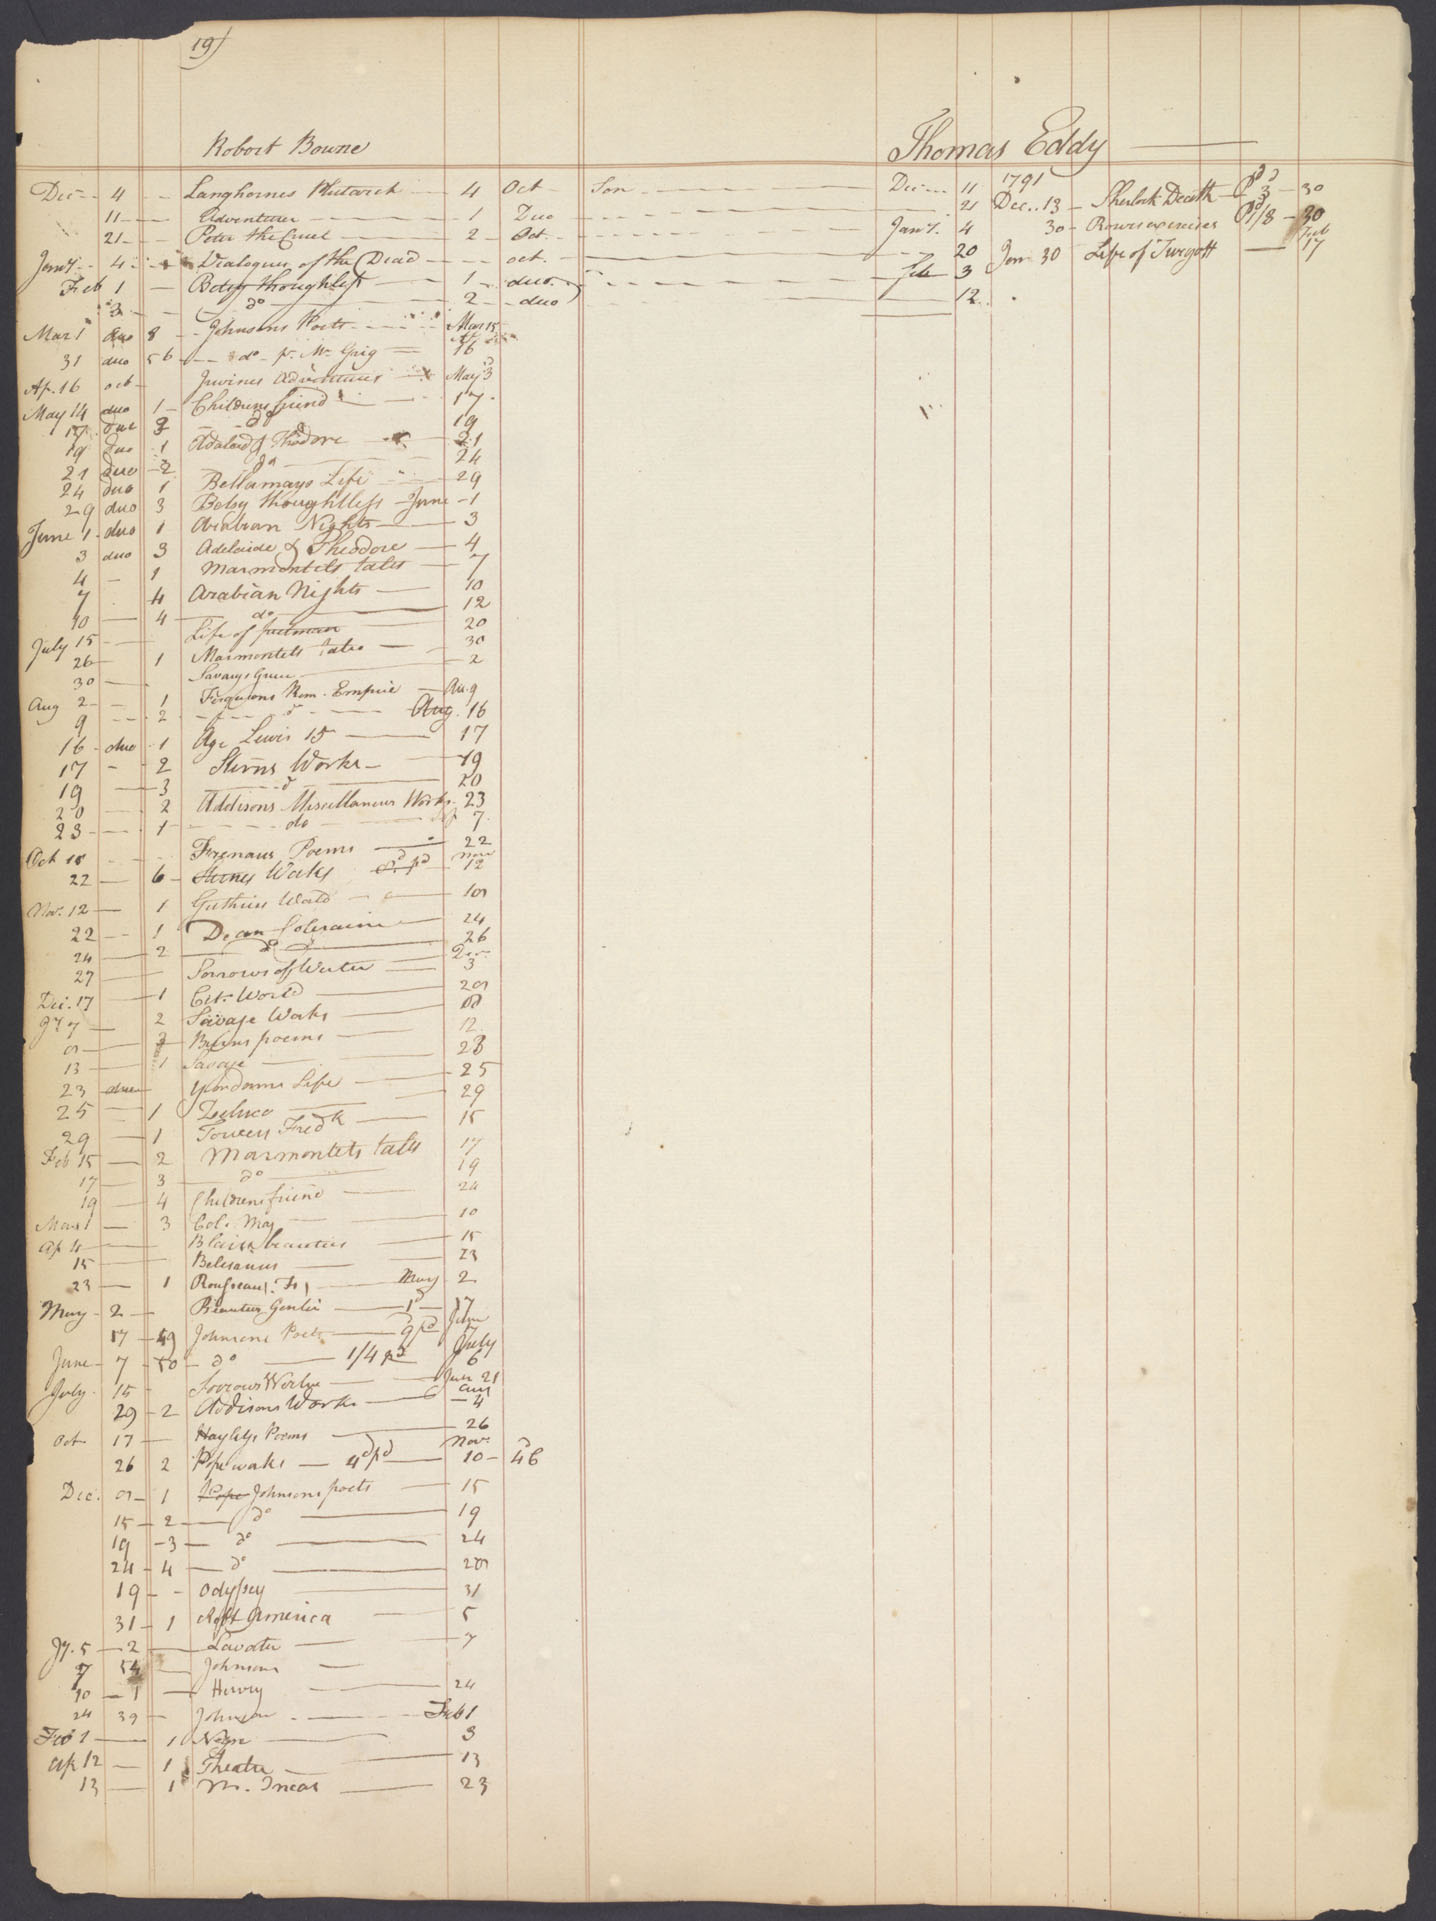 19)
Robert Bowne
Thomas Eddy
Dec 4 Langhornes Plutarch 4 Oct Son Dec 11
1791
11 Adventurer 1 Duo 21
Dec. 13 Sherlock Death Pd 3d 30
21 Peter the Cruel 2 Oct. Jany. 4
30 Rowes exercises Pd 1/8 30
Jany. 4 Dialogues of the Dead oct. 20
Jan 30 Life of Turgott Feb 17
Feb 1 Betsy thoughtless 1 duo. Feb 3
3 do 2 duo 12
Mar 1 duo 8 Johnsons Poets Mar 15
31 duo 56 do pr. Mr. Grig 16
Ap. 16 oct Adventures May 3
May 14 duo 1 Childrens friend 17
17 duo 2 do 19
19 duo 1 Adalaid & Thodore 21
21 duo 2 do 24
24 duo 1 Bellamays Life 29
29 duo 3 Betsy thoughtless June 1
June 1 duo 1 Arabian Nights 3
3 duo 3 Adelaide & Theodore 4
4 1 Marmontels tales 7
7 4 Arabian Nights 10
10 4 do 12
July 15 Life of 20
26 1 Marmontels tales 30
30 Savarys 2
Aug 2 1 Fergusons Rom. Empire Au. 9
9 2 do Aug. 16
16 duo 1 Age Lewis 15 17
17 2 Sterns Works 19
19 3 do 20
20 2 Addisons Miscellaneous Works 23
23 1 do 7
Oct 18 Freneaus Poems 22
22 6 Sternes Works pd Nov 12
Nov. 12 1 Guthries World
22 1 Dean Colerain 24
24 2 do 26
27 Sorrows of Werter Dec 3
Dec. 17 1 Cit. World
Jy 7 2 Savage Works
3 Burns poems 12
13 1 Savage 23
23 duo Life 25
25 1 Zeluco 29
29 1 Towers Fredk 15
Feb 15 2 Marmontels tales 17
17 3 do 19
19 4 Childrens friend 24
Mar 1 3 Col. Mag 10
Ap 4 Blairs beauties 15
15 Belesarius 23
23 1 May 2
May 2 Beauties 1d 17
17 49 Johnsons Poets 9d pd June 7
June 7 50 do 1/4 pd July 6
July 15 Sorrows Werter 21
29 2 Addisons Works Aug 4
Oct 17 Hayleys Poems 26
26 2 Pope works 4d pd Nov. 10 46
Dec. 1 Pope Johnsons poets 15
15 2 do 19
19 3 do 24
24 4 do
19 Odyssey 31
31 1 America 5
Jy. 5 2 Lavater 7
7 54 Johnson
10 1 Hervey 24
24 39 Johnson Feb 1
Feb 1 1 3
Ap 12 1 Theatre 13
13 1 M. Incas 23